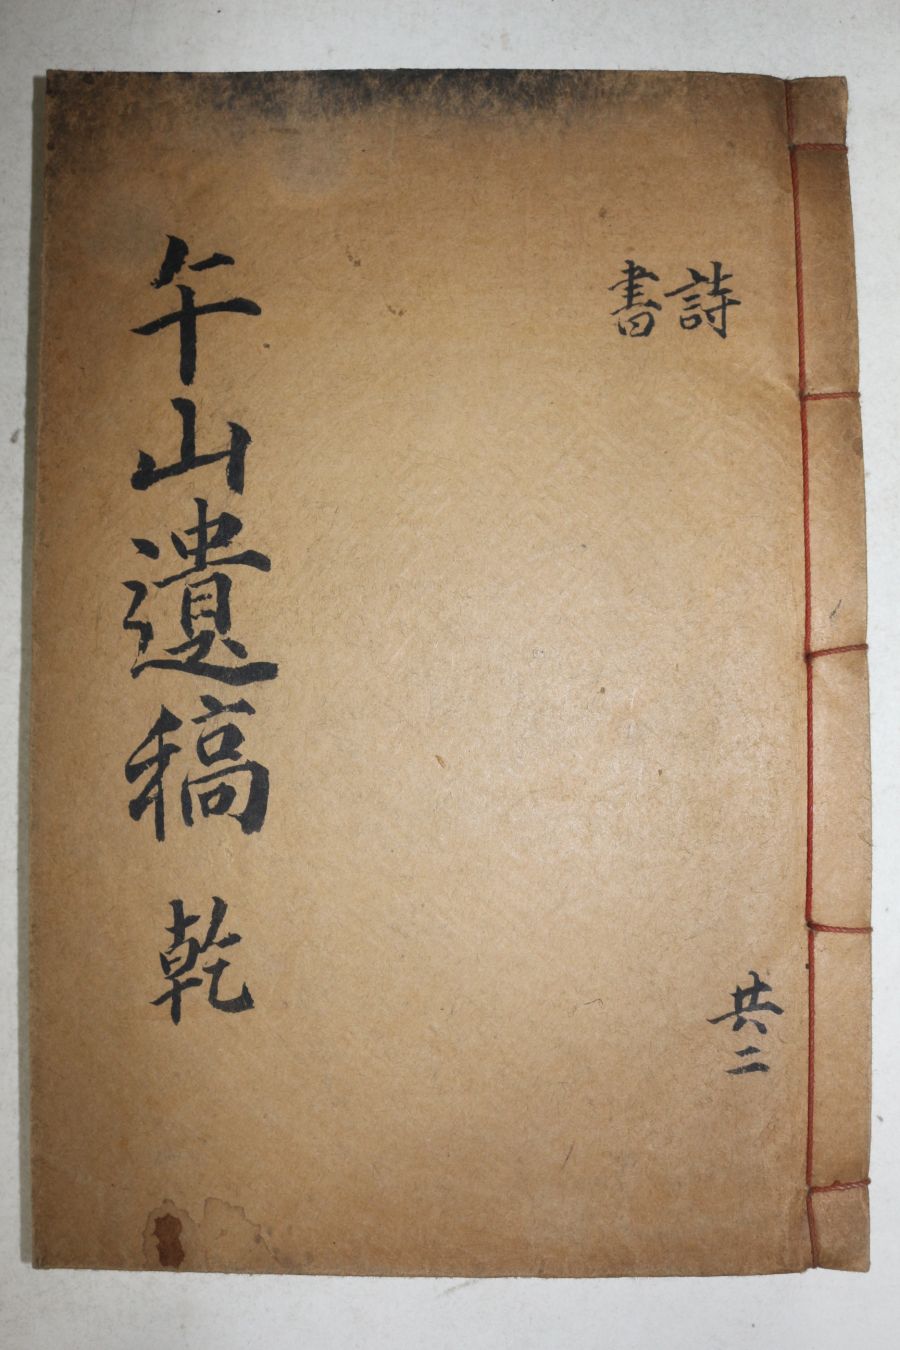 詩
書
共二
午山遺稿 乾